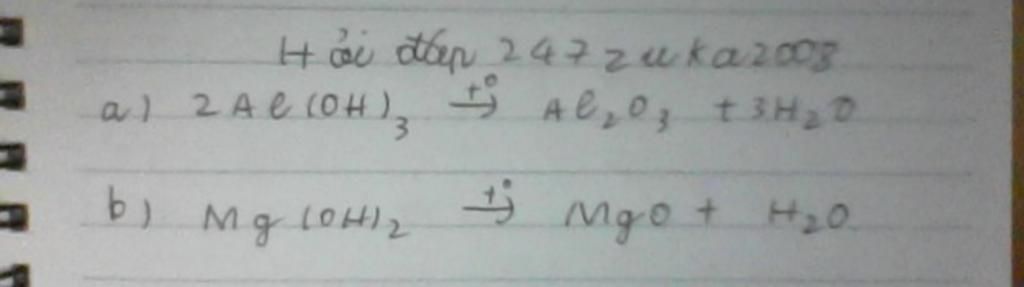 Hỏi đáp 247 zuka2003
a) 2Al(OH)₃ –t°→ Al₂O₃ + 3H₂O
b) Mg(OH)₂ –t°→ MgO + H₂O